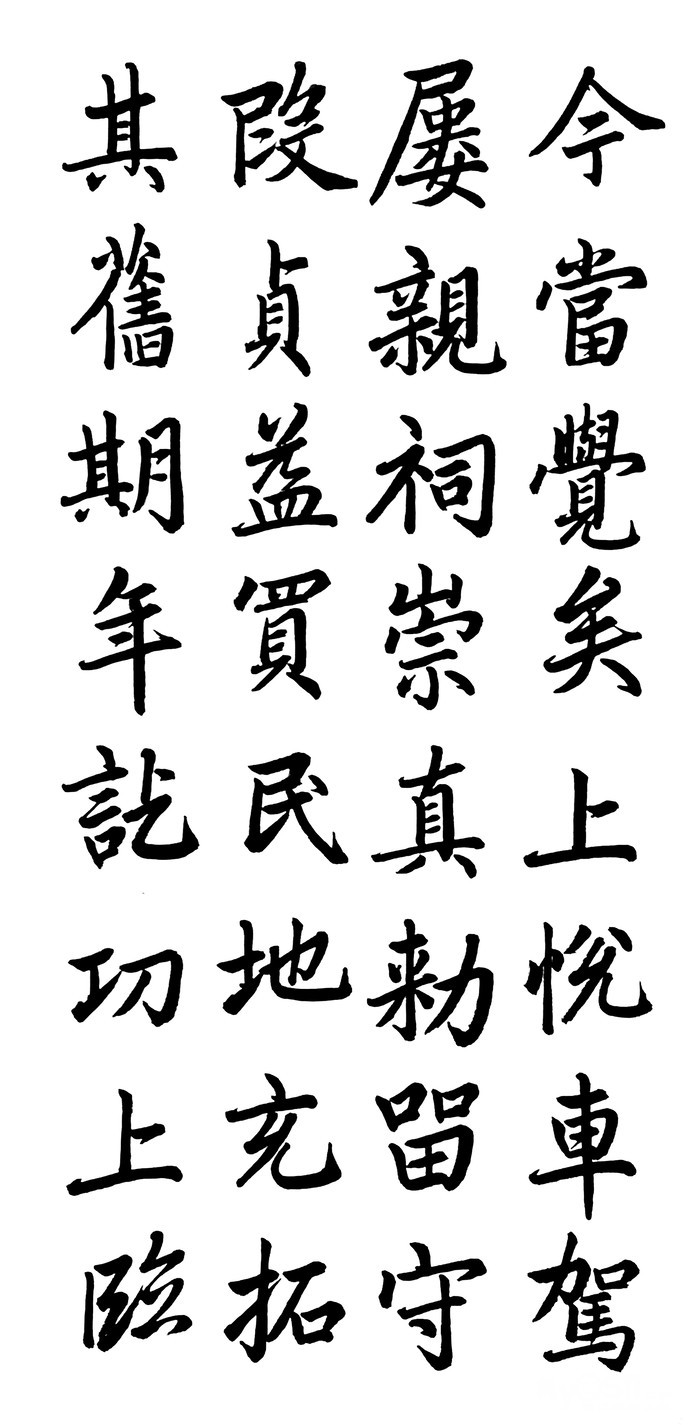 今當覺矣上悅車駕
屢親祠崇真勑留守
段貞益買民地充拓
其舊期年訖功上臨